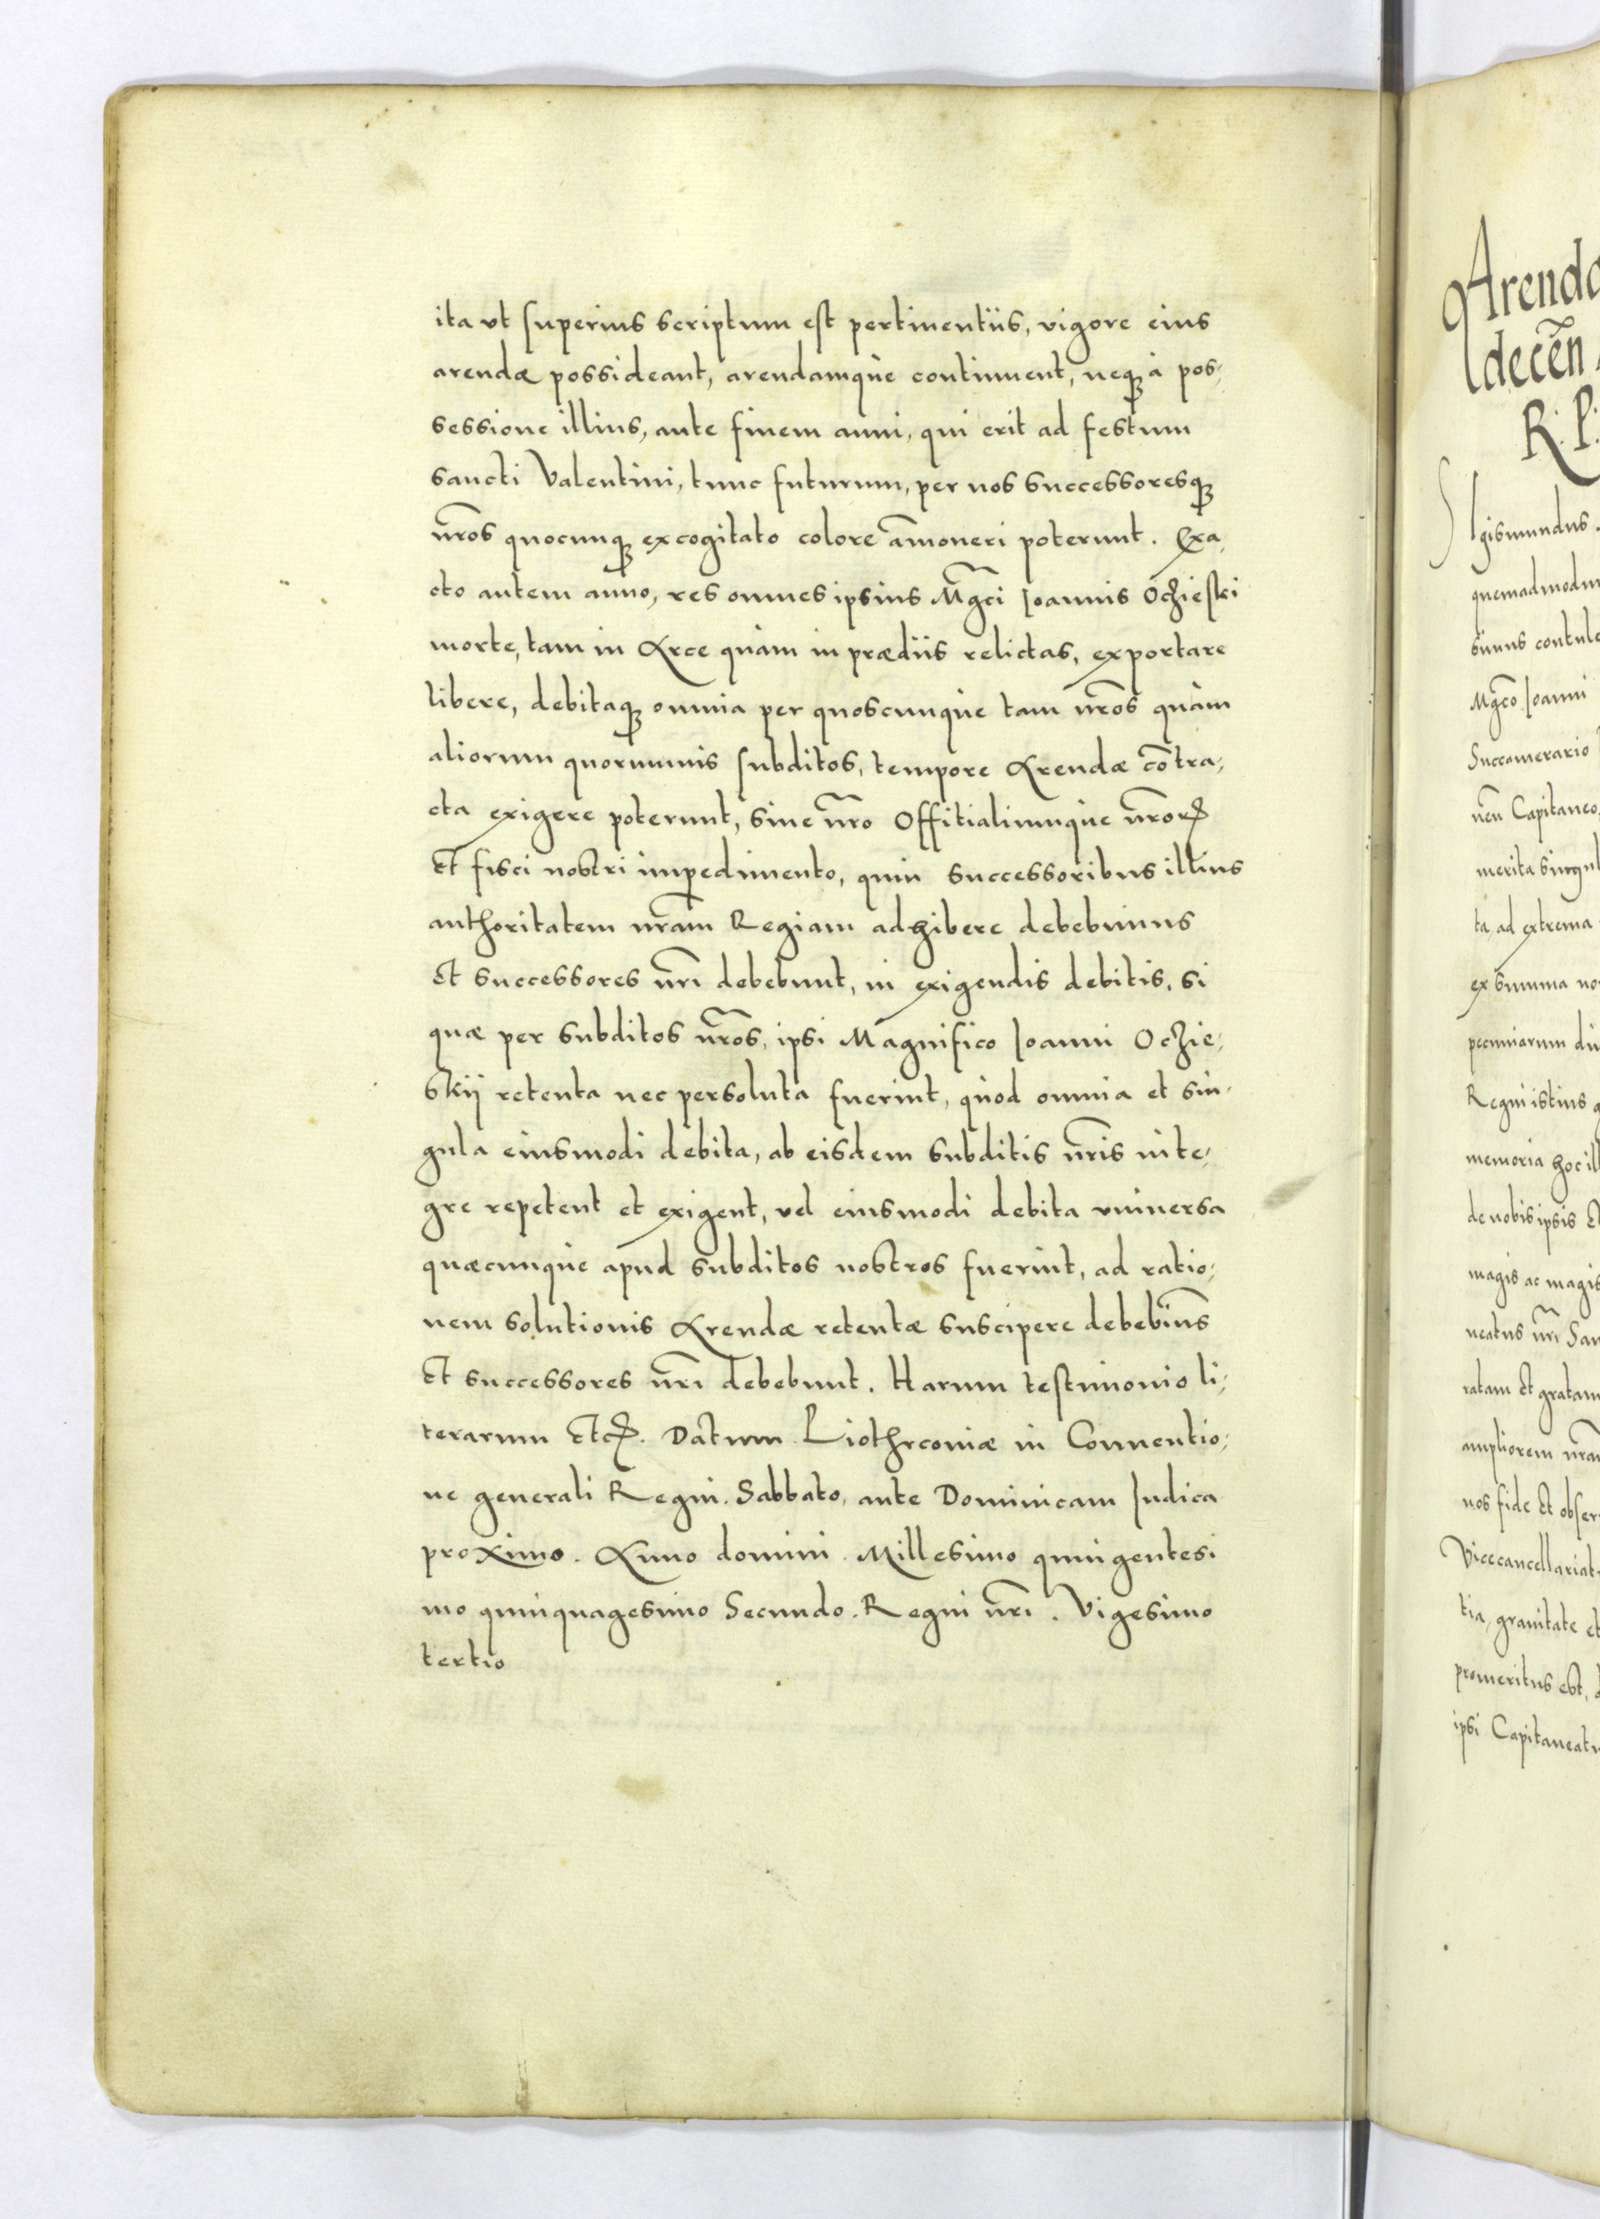 ita vt superius scriptum est pertinentiis, vigore eius
arendæ possideant, arendamque continuent, neqȝ à pos-
sessione illius, ante finem anni, qui erit ad festum
sancti Valentini, tunc futurum, per nos successoresqȝ
nr̃os quocunqȝ excogitato colore amoneri poterunt. Exa-
cto autem anno, res omnes ipsius Mgc̃i Ioannis Oczieski
morte, tam in Arce quàm in prædiis relictas, exportare
libere, debitaqȝ omnia per quoscunque tam nr̃os quàm
aliorum quorumuis subditos, tempore Arendæ cõtra-
cta exigere poterunt, sine nr̃o Offitialiumque nr̃orꝝ
Et fisci nostri impedimento, quin successoribus illius
authoritatem nr̃am Regiam adhibere debebimus
Et successores nr̃i debebunt, in exigendis debitis, si
quæ per subditos nr̃os, ipsi Magnifico Ioanni Oczie-
skij retenta nec persoluta fuerint, quod omnia et sin-
gula eiusmodi debita, ab eisdem subditis nr̃is inte-
gre repetent et exigent, vel eiusmodi debita vniuersa
quæcunque apud subditos nostros fuerint, ad ratio-
nem solutionis Arendæ retentæ suscipere debebim̃s
Et successores nr̃i debebunt. Harum testimonio li-
terarum Etcꝫ. Datum Piothrcouiæ in Conuentio-
ne generali Regni. Sabbato, ante Dominicam Iudica
proximo. Anno domini. Millesimo quingentesi
mo quinquagesimo Secundo. Regni nr̃i. Vigesimo
tertio
Arenda
decen̄
R. P.
Sigismundus.
quemadmodum
simus
Mgc̃o Ioanni
Succamerario
nen̄ Capitaneo,
merita
ta, ad extrema
ex summa
pecuniarum
Regni istius
memoria hoc
de nobis ipsis Et
magis ac magis
neatus nr̃i
ratam Et gratam
ampliorem
nos fide Et
Vicecancellariat
tia, grauitate et
promeritus est,
ipsi Capitaneatu